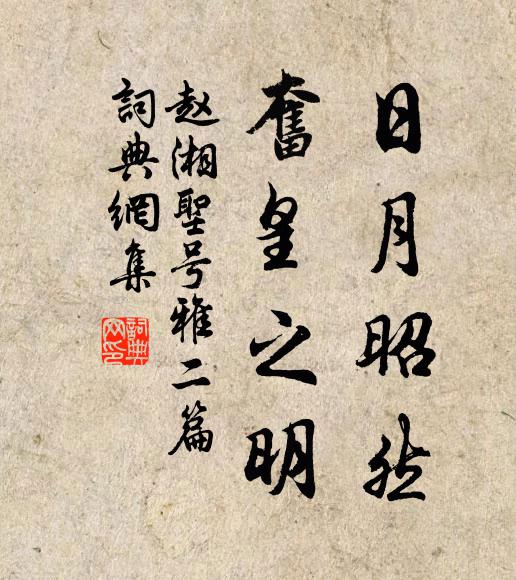 日月昭然
奮皇之明
赵湘聖号雅二篇
詞典網集
詞典網印